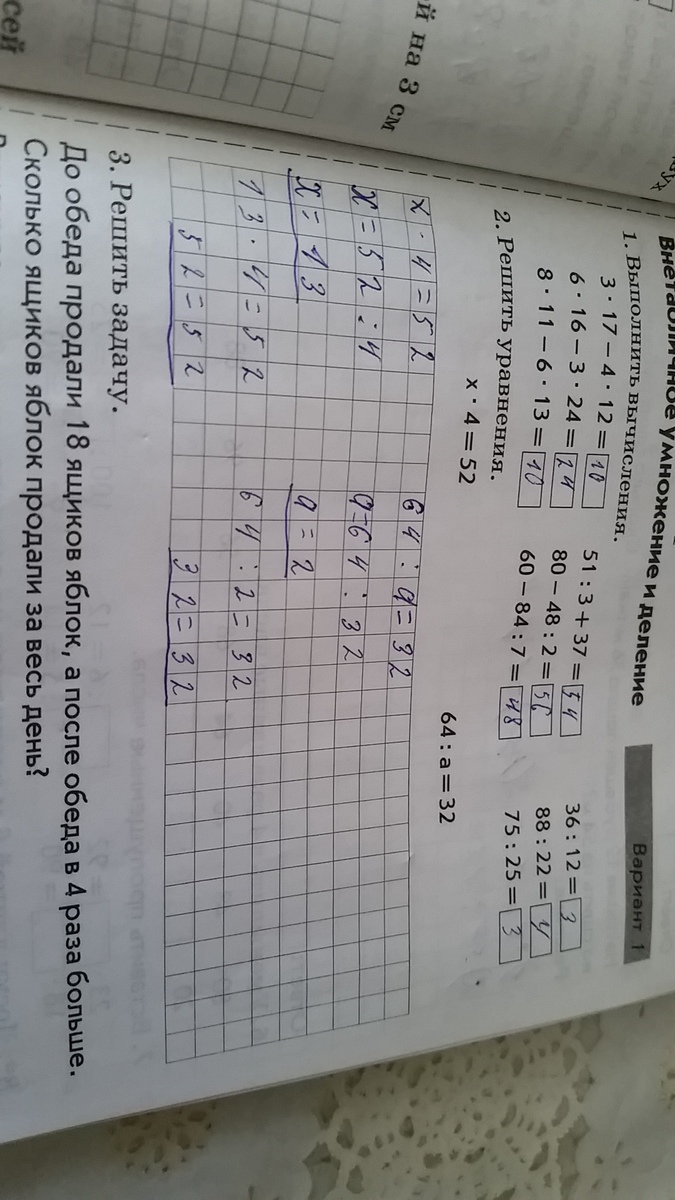 й на 3 см
сей
Внетабличное умножение и деление
Вариант 1
1. Выполнить вычисления.
3 · 17 – 4 · 12 = 10
51 : 3 + 37 = 54
36 : 12 = 3
6 · 16 – 3 · 24 = 24
80 – 48 : 2 = 56
88 : 22 = 4
8 · 11 – 6 · 13 = 10
60 – 84 : 7 = 48
75 : 25 = 3
2. Решить уравнения.
x · 4 = 52
64 : a = 32
x · 4 = 52
64 : a = 32
x = 52 : 4
a = 64 : 32
x = 13
a = 2
13 · 4 = 52
64 : 2 = 32
52 = 52
32 = 32
3. Решить задачу.
До обеда продали 18 ящиков яблок, а после обеда в 4 раза больше.
Сколько ящиков яблок продали за весь день?